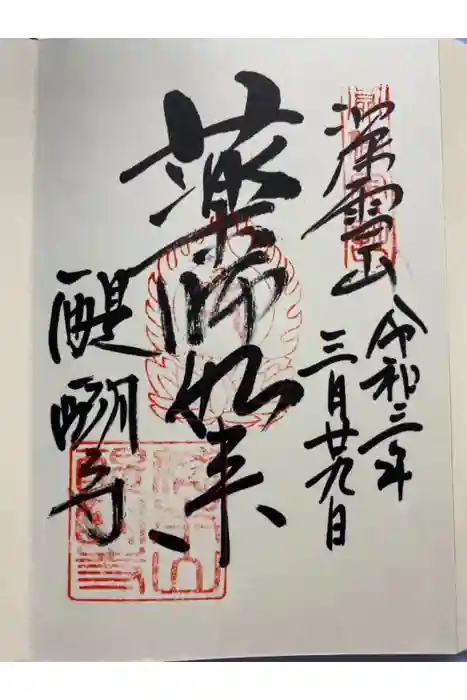 深雪山
令和二年
三月廿九日
薬師如来
醍醐寺